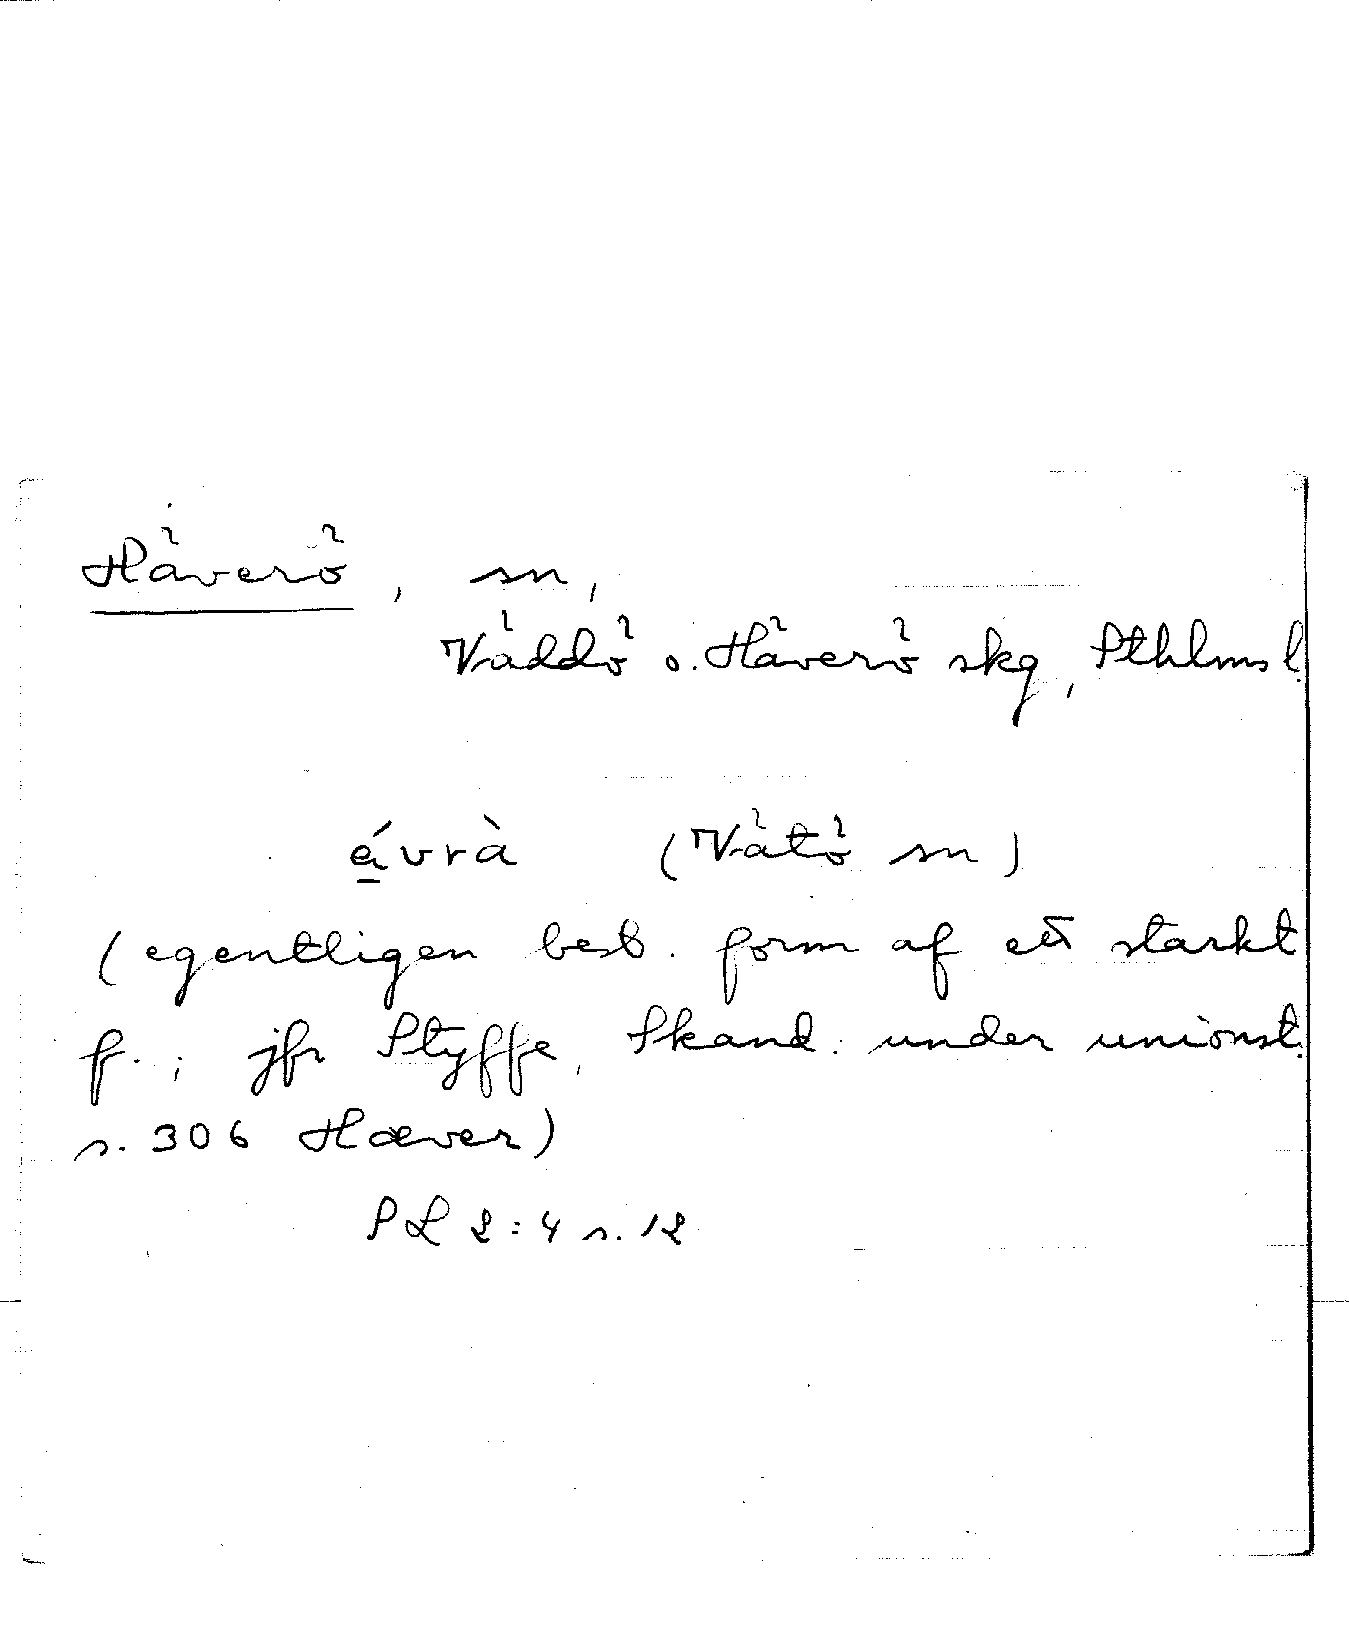 Häverö, sn,
Väddö o. Häverö skg, Sthlms l.
á̱vrà (Vätö sn)
(egentligen best. form af ett starkt
f.; jfr Styffe, Skand. under unionst.
s. 306 Hæver)
SL 2:4 s. 12